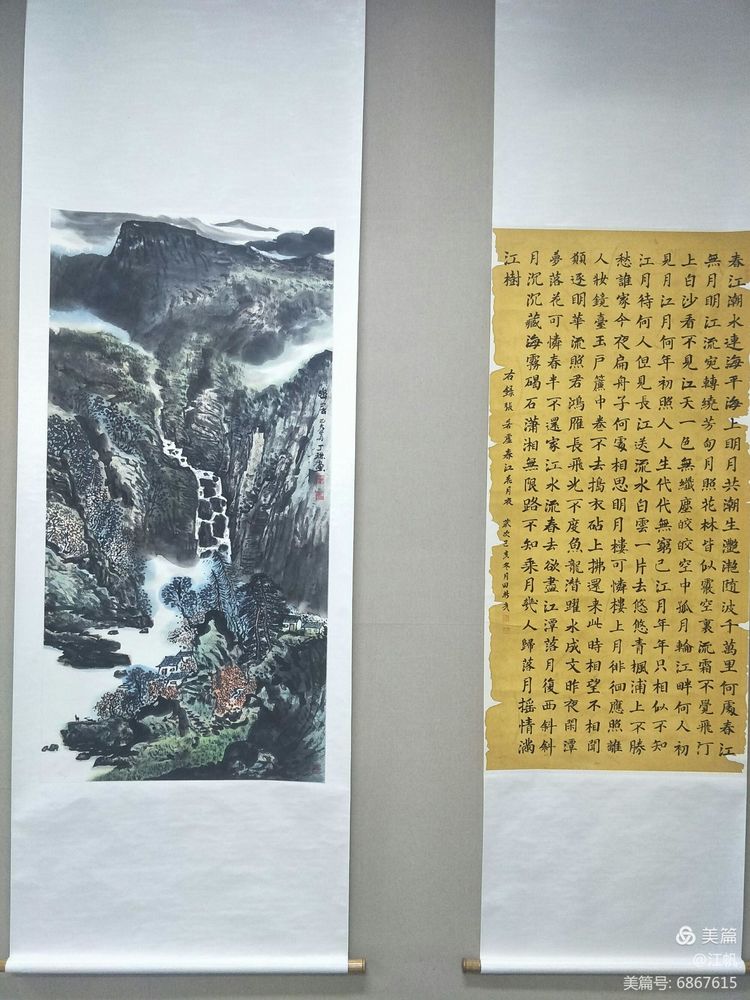 春江潮水連海平海上明月共潮生灩灩随波千萬里何處春江
無月明江流宛轉繞芳甸月照花林皆似霰空裏流霜不覺飛汀
上白沙看不見江天一色無纖塵皎皎空中孤月輪江畔何人初
見月江月何年初照人人生代代無窮已江月年年只相似不知
江月待何人但見長江送流水白雲一片去悠悠青楓浦上不勝
愁誰家今夜扁舟子何處相思明月樓可憐樓上月徘徊應照離
人妝鏡臺玉戶簾中卷不去搗衣砧上拂還来此時相望不相聞
願逐明華流照君鴻雁長飛光不度魚龍潜躍水成文昨夜閑潭
夢落花可憐春半不還家江水流春去欲盡江潭落月復西斜斜
月沉沉藏海霧碣石瀟湘無限路不知乘月幾人歸落月摇情滿
江樹
右錄張若虛春江花月夜 歲次己亥冬月田
美篇
@江帆
美篇号: 6867615